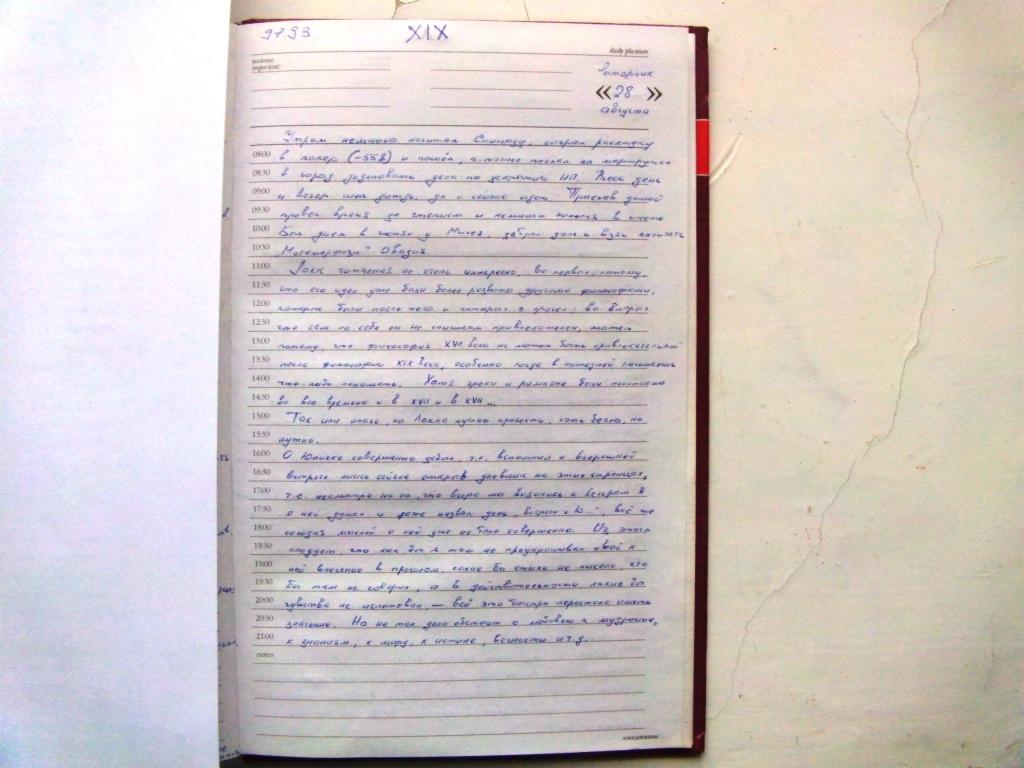 9793 XIX
daily planner
важное
important:
вторник
« 28 »
августа
Утром немного почитал Спинозу, сыграл раскладку
08:00 в покер (-55$) и пошёл, а точнее поехал на маршрутке
08:30 в город доделывать дела по закрытию ИП. Весь день
09:00 и вечер шёл дождь, да и сейчас идёт. Приехав домой
09:30 провёл время за чтением и немного
10:00 Был днём в гостях у забрал долг и взял почитать
10:30 „Метаморфозы" Овидия.
11:00 Локк читается не очень интересно, во-первых потому
11:30 что его идеи уже были более развиты другими философами,
12:00 которые были после него и которых я прочёл; во-вторых
12:30 что сам по себе он не слишком привлекателен, может
13:00 потому, что философия XVII века не может быть привлекательной
13:30 после философии XIX века, особенно когда в последней начинаешь
14:00 что-либо понимать. Хотя греки и римляне были почитаемы
14:30 во все времена и в XVII и в XVIII...
15:00 Так или иначе, но Локка нужно прочесть, хоть бегло, но
15:30 нужно.
16:00 О Юличке совершенно забыл, т.к. вспомнил о вчерашней
16:30 встрече лишь сейчас открыв дневник на этих страницах,
17:00 т.е. несмотря на то, что вчера мы виделись и вечером я
17:30 о ней думал и даже назвал день „встреч с Ю...", всё же
18:00 сегодня мыслей о ней уже не было совершенно. Из этого
18:30 следует, что как бы я там не преукрашивал своё к
19:00 ней влечение в прошлом, какие бы стихи не писал, что
19:30 бы там не говорил, а в действительности какие бы
20:00 чувства не испытывал, — всё это быстро перестало иметь
20:30 значение. Но не так дело обстоит с любовью к мудрости,
21:00 к знаниям, к миру, к истине, вечности и т.д.
notes
ежедневник